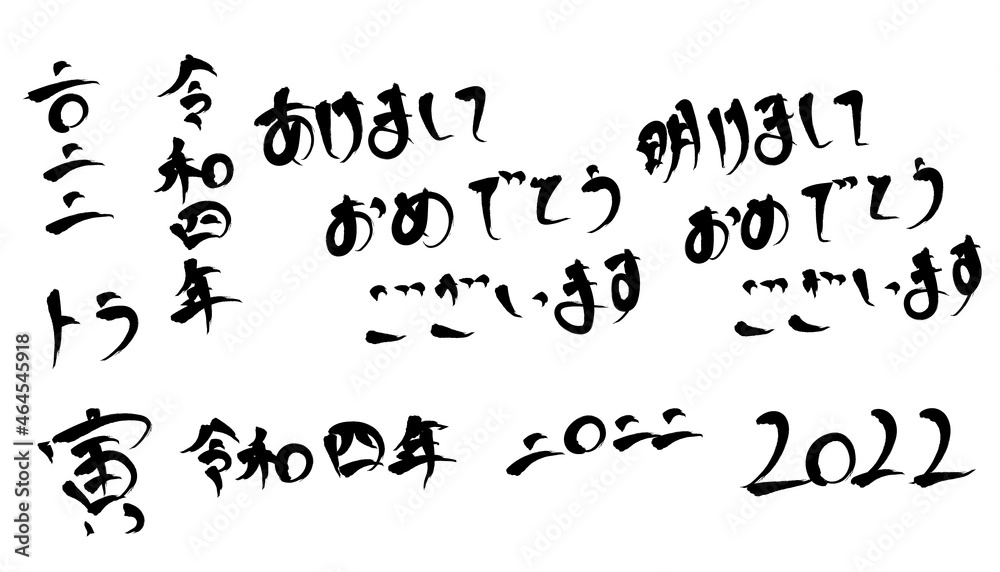 二〇二二
トラ
令和四年
あけまして
おめでとう
ございます
明けまして
おめでとう
ございます
寅
令和四年
二〇二二
2022
Adobe Stock | #464545918